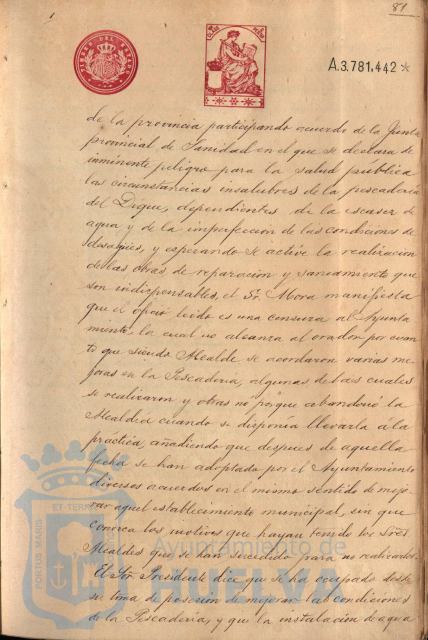 81
TIMBRE DEL ESTADO
A.3.781.442*
de la provincia participando acuerdo de la Junta
provincial de Sanidad en el que se declara de
inminente peligro para la salud publica
las circunstancias insalubres de la pescaderia
del Dique, dependientes de la escasez de
agua y de la imperfeccion de las condiciones de
desagües, y esperando se active la realizacion
de las obras de reparacion y saneamiento que
son indispensables, el Sr. Mora manifiesta
que el oficio leido es una censura al Ayunta-
miento la cual no alcanza al orador por cuan-
to que siendo Alcalde se acordaron varias me-
joras en la Pescaderia, algunas de las cuales
se realizaron y otras no porque abandonó la
Alcaldia cuando se disponia llevarla a la
practica, añadiendo que despues de aquella
fecha se han adoptado por el Ayuntamiento
diversos acuerdos en el mismo sentido de mejo-
rar aquel establecimiento municipal, sin que
conozca los motivos que hayan tenido los Sres.
Alcaldes que se han sucedido para no realizarlo.
El Sr. Presidente dice que se ha ocupado desde
su toma de posesion de mejorar las condiciones
de la Pescaderia, y que la instalacion de agua
PORTUS MARIS
ET TERRAE
Ayuntamiento de
HUELVA